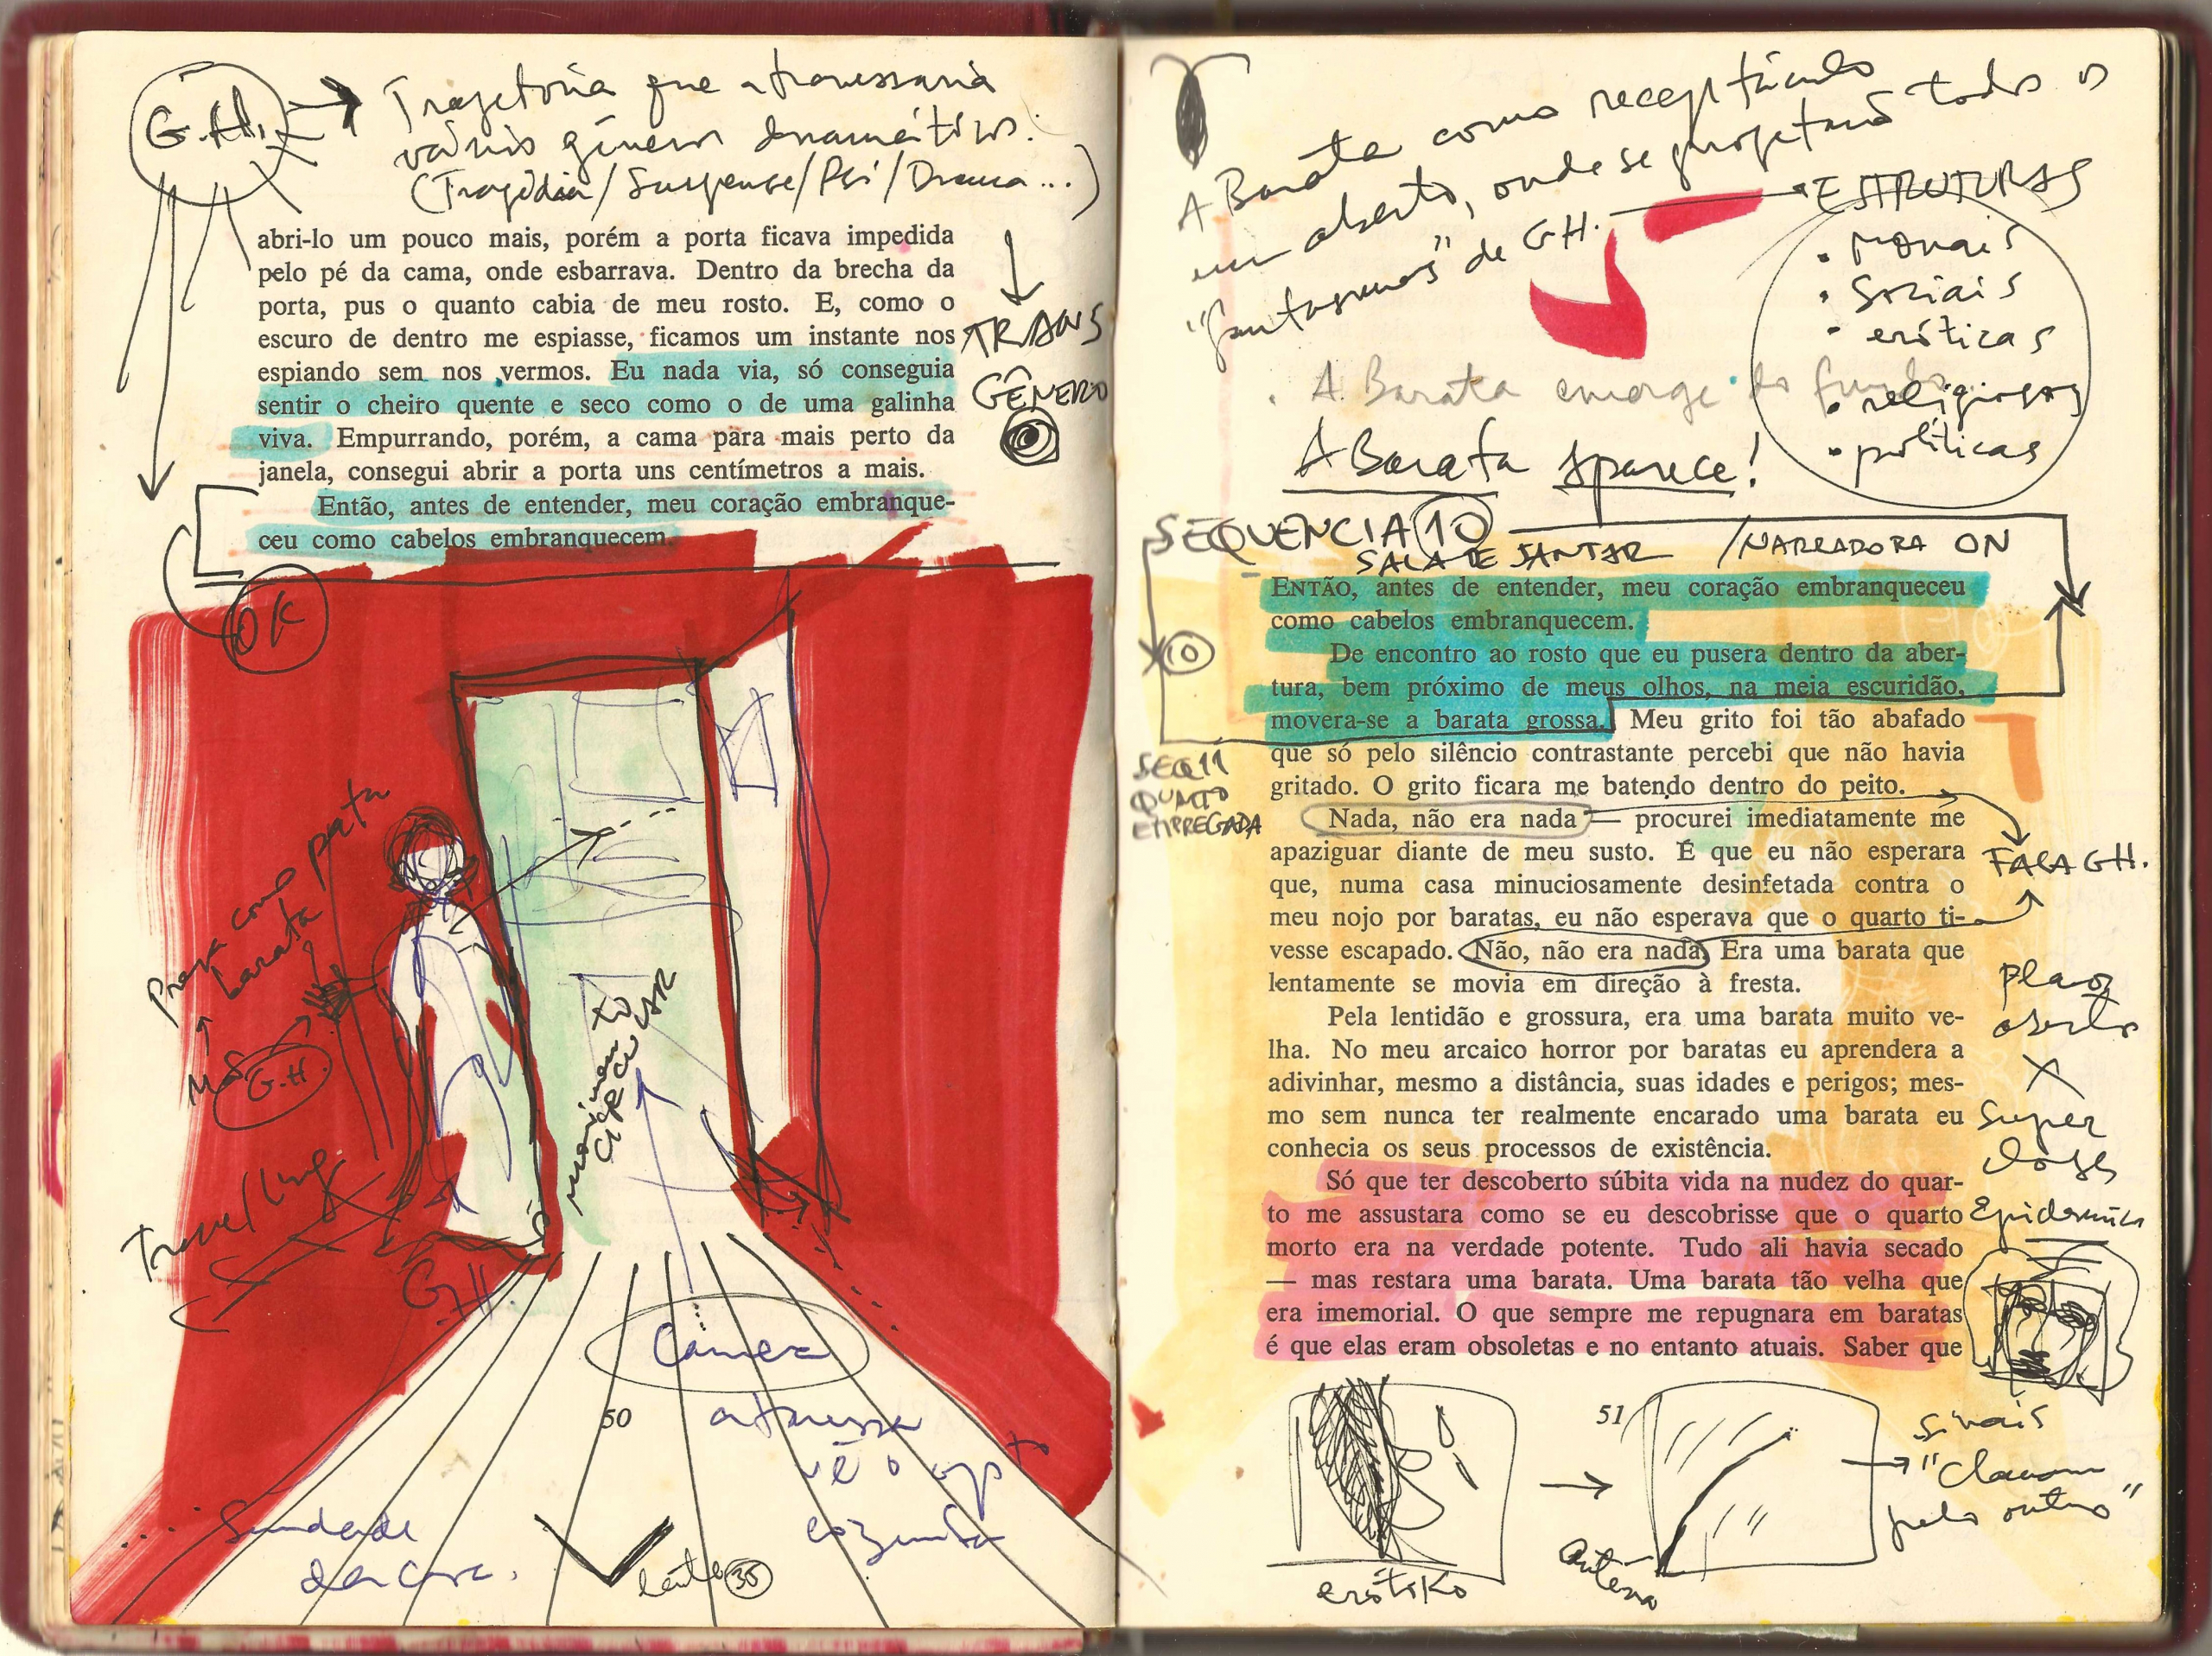 G.H. → Trajetória que atravessaria
vários gêneros dramáticos:
(Tragédia/Suspense/Psi/Drama...)
TRANS
GÊNERO
abri-lo um pouco mais, porém a porta ficava impedida
pelo pé da cama, onde esbarrava. Dentro da brecha da
porta, pus o quanto cabia de meu rosto. E, como o
escuro de dentro me espiasse, ficamos um instante nos
espiando sem nos vermos. Eu nada via, só conseguia
sentir o cheiro quente e seco como o de uma galinha
viva. Empurrando, porém, a cama para mais perto da
janela, consegui abrir a porta uns centímetros a mais.
Então, antes de entender, meu coração embranque-
ceu como cabelos embranquecem.
OK
barata
pata
G.H.
movimento
CIRCULAR
Travelling
GH
Camera
atravessa
vê o
cozinha
50
lente 35
A Barata como receptáculo
em aberto, onde se projetará todos os
"fantasmas" de GH. → ESTRUTURAS
• morais
• sociais
• eróticas
• religiosas
• políticas
. A Barata emerge do fundo
A Barata aparece!
SEQUENCIA 10
SALA DE JANTAR /NARRADORA ON
ENTÃO, antes de entender, meu coração embranqueceu
como cabelos embranquecem.
10
De encontro ao rosto que eu pusera dentro da aber-
tura, bem próximo de meus olhos, na meia escuridão,
movera-se a barata grossa. Meu grito foi tão abafado
que só pelo silêncio contrastante percebi que não havia
gritado. O grito ficara me batendo dentro do peito.
SEQ 11
QUARTO
EMPREGADA
Nada, não era nada — procurei imediatamente me
apaziguar diante de meu susto. É que eu não esperara
que, numa casa minuciosamente desinfetada contra o
meu nojo por baratas, eu não esperava que o quarto ti-
vesse escapado. Não, não era nada. Era uma barata que
lentamente se movia em direção à fresta.
FALA GH.
Pela lentidão e grossura, era uma barata muito ve-
lha. No meu arcaico horror por baratas eu aprendera a
adivinhar, mesmo a distância, suas idades e perigos; mes-
mo sem nunca ter realmente encarado uma barata eu
conhecia os seus processos de existência.
plano
aberto
X
super
closes
Epidérmico
Só que ter descoberto súbita vida na nudez do quar-
to me assustara como se eu descobrisse que o quarto
morto era na verdade potente. Tudo ali havia secado
— mas restara uma barata. Uma barata tão velha que
era imemorial. O que sempre me repugnara em baratas
é que elas eram obsoletas e no entanto atuais. Saber que
51
erótiko
antena
sinais
"clamam
pelo outro"